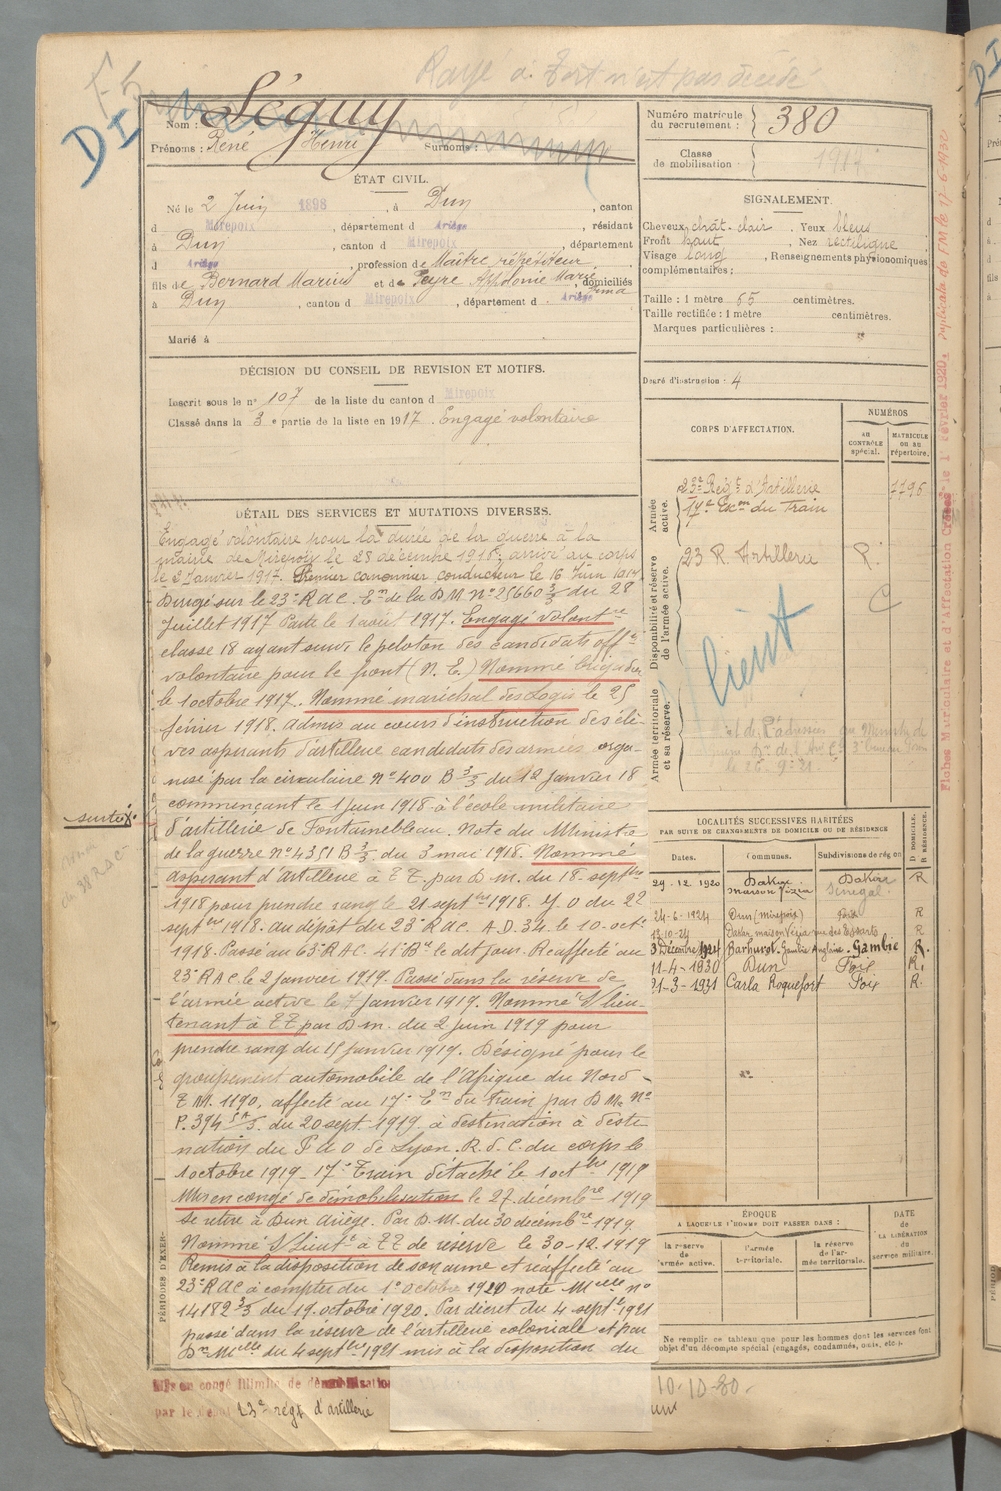 Rayé à tort n'est pas décédé
F5
DI
Nom : Séguy
Prénoms : René Henri Surnoms :
Numéro matricule du recrutement : 380
Classe de mobilisation : 1917
ÉTAT CIVIL.
Né le 2 Juin 1898, à Dun, canton
d Mirepoix, département d Ariège, résidant
à Dun, canton d Mirepoix, département
d Ariège, profession de Maître répétiteur
fils de Bernard Marius et de Peyre Apholonie Marie Irma, domiciliés
à Dun, canton d Mirepoix, département d Ariège
Marié à
SIGNALEMENT.
Cheveux chât. clair. Yeux bleus
Front haut, Nez rectiligne
Visage long, Renseignements physionomiques
complémentaires :
Taille : 1 mètre 65 centimètres.
Taille rectifiée : 1 mètre centimètres.
Marques particulières :
Degré d'instruction : 4
DÉCISION DU CONSEIL DE REVISION ET MOTIFS.
Inscrit sous le n° 107 de la liste du canton d Mirepoix
Classé dans la 3e partie de la liste en 1917. Engagé volontaire
CORPS D'AFFECTATION.
NUMÉROS
AU CONTRÔLE spécial.
MATRICULE OU AU répertoire.
Armée active.
23e Regt d'Artillerie 1796
17e Escon du Train
Disponibilité et réserve de l'armée active.
23 R. Artillerie R.
C
lieut
Armée territoriale et sa réserve.
DÉTAIL DES SERVICES ET MUTATIONS DIVERSES.
Engagé volontaire pour la durée de la guerre à la
mairie de Mirepoix le 28 décembre 1916. arrivé au corps
le 2 Janvier 1917. Premier canonnier conducteur le 16 Juin 1917
Dirigé sur le 23e RAC. En de la DM No 25660 3/3 du 28
Juillet 1917 Parti le 1 août 1917. Engagé volontre
classe 18 ayant suivi le peloton des candidats offrs
volontaire pour le front (N.E.) Nommé brigadier
le 1 octobre 1917. Nommé maréchal des Logis le 25
février 1918. Admis au cours d'instruction des élè-
ves aspirants d'artillerie candidats des armées orga-
nisé par la circulaire No 400 B 3/3 du 12 Janvier 18
commençant le 1 juin 1918 à l'école militaire
d'artillerie de Fontainebleau. Note du Ministre
de la guerre No 4351 B 3/3 du 3 mai 1918. Nommé
aspirant d'artillerie à TT. par D.M. du 18 septbre
1918 pour prendre rang le 21 septbre 1918. J.O du 22
septbre 1918. au dépôt du 23e RAC. A.D. 34. le 10 octbre
1918. Passé au 63e RAC. 41e Bie le dit jour. Réaffecté au
23e RAC le 2 Janvier 1919. Passé dans la réserve de
l'armée active le 7 Janvier 1919. Nommé S/lieu-
tenant à TT par D.M. du 2 juin 1919 pour
prendre rang du 15 janvier 1919. Désigné pour le
groupement automobile de l'Afrique du Nord -
T.M. 1190. affecté au 17e En du Train par D.Mle No
P. 394 du 20 sept. 1919. à destination à desti
nation du P a O de Lyon. R.d.C. du corps le
1 octobre 1919. 17e Train détaché le 1 octbre 1919
Mis en congé de démobilisation le 27 décembre 1919
se retire à Dun Ariège. Par D.M. du 30 décembre 1919
Nommé S/Lieutt à TT de réserve le 30-12-1919
Remis à la disposition de son arme et réaffecté au
23e RAC à compter du 1er Octobre 1920 note Mielle No
14182 3/3 du 19 octobre 1920. Par décret du 4 septbre 1921
passé dans la réserve de l'artillerie coloniale et par
Don Mielle du 4 septbre 1921 mis à la disposition du
suite
LOCALITÉS SUCCESSIVES HABITÉES
PAR SUITE DE CHANGEMENTS DE DOMICILE OU DE RÉSIDENCE
Dates. Communes. Subdivisions de région D. DOMICILE. R. RÉSIDENCE.
29-12 1920 Dakar maison Vézia Dakar Sénégal R
24-6-1924 Dun (mirepoix) Foix R
13-10-24 Dakar maison Vézia rue des Essarts R
3 Décembre 1924 Barhurot. Gambie Anglaise. Gambie R.
11-4-1930 Dun Foix R.
21-3-1931 Carla Roquefort Foix R.
ÉPOQUE
A LAQUELLE L'HOMME DOIT PASSER DANS :
la réserve de l'armée active.
l'armée territoriale.
la réserve de l'armée territoriale.
DATE de LA LIBÉRATION du service militaire.
Ne remplir ce tableau que pour les hommes dont les services font
objet d'un décompte spécial (engagés, condamnés, omis, etc.).
PÉRIODES D'EXER-
Mis en congé illimité de démobilisation
par le dépôt 23e régt d'artillerie
10-10-30.
Fiches Matriculaire et d'Affectation Créées le 1 février 1920. duplicata de FM le 17-6-1932